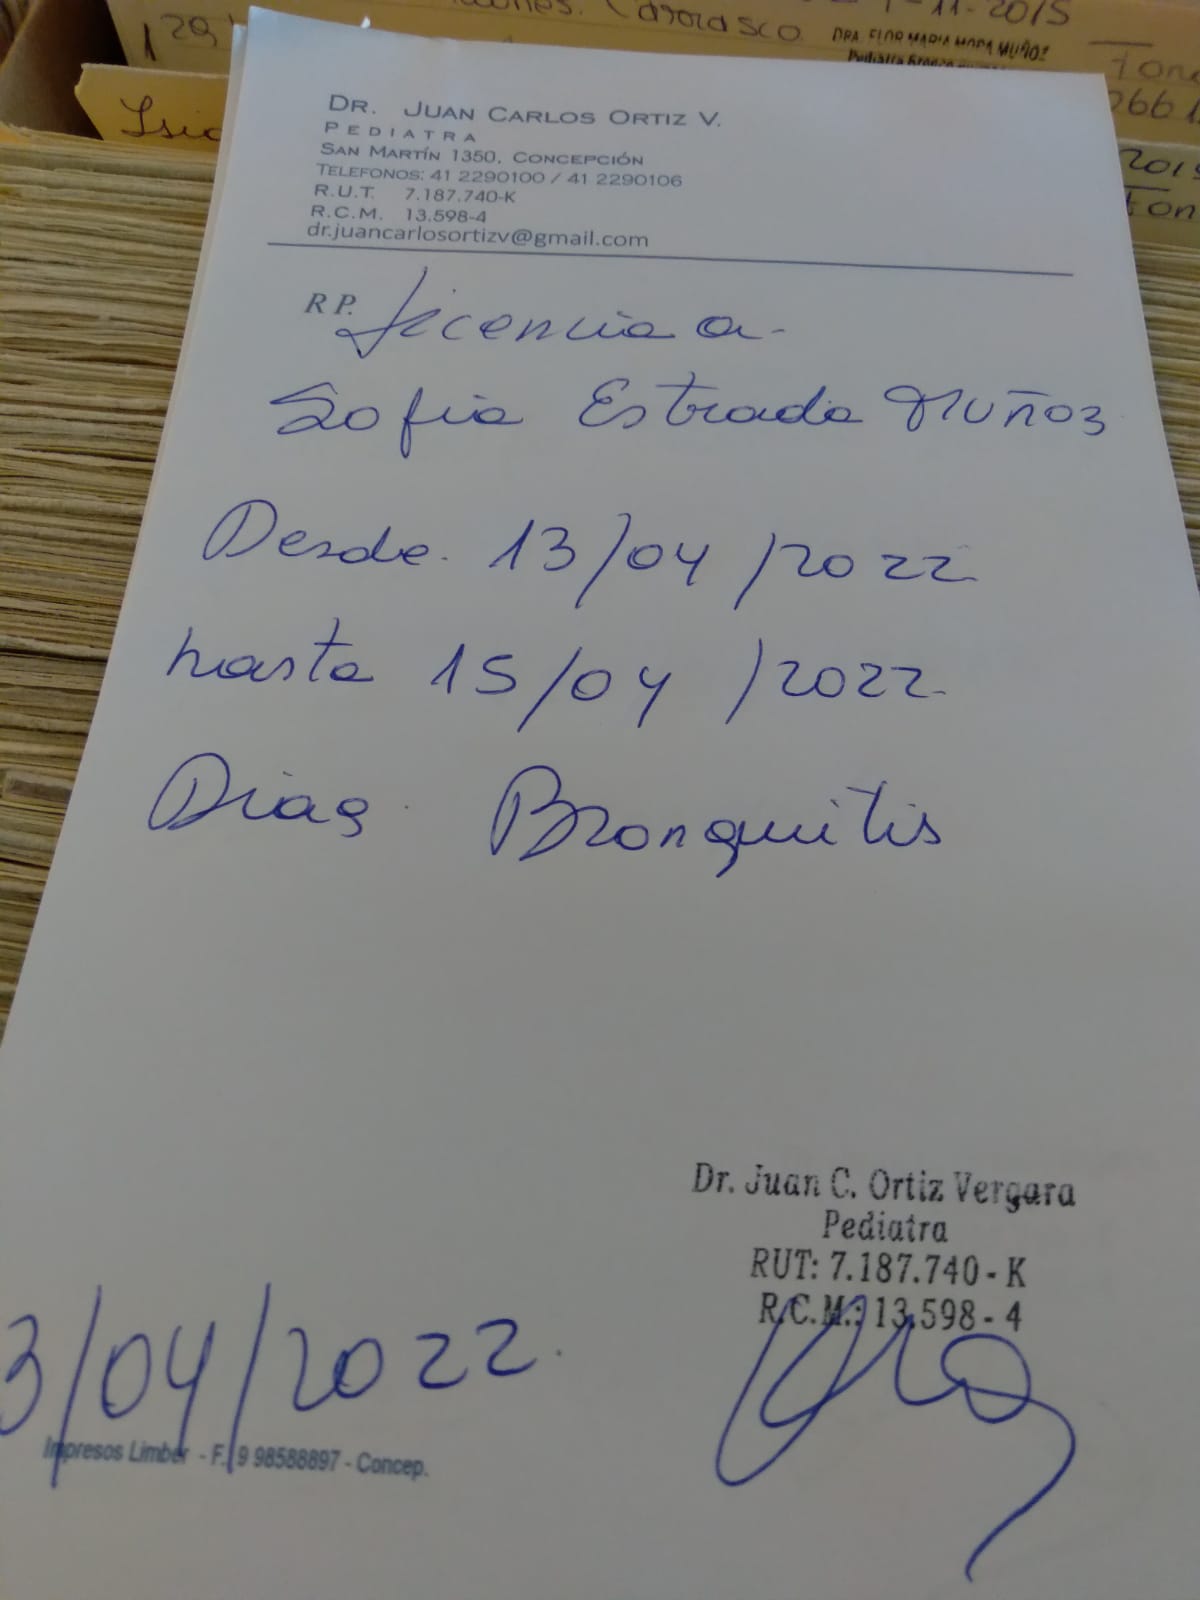 11-2015
Carrasco
DRA. FLOR MARIA MORA MUÑOZ
29
DR. JUAN CARLOS ORTIZ V.
PEDIATRA
SAN MARTÍN 1350, CONCEPCIÓN
TELEFONOS: 41 2290100 / 41 2290106
R.U.T. 7.187.740-K
R.C.M. 13.598-4
dr.juancarlosortizv@gmail.com
RP. Licencia a-
Sofia Estrada Muñoz
Desde. 13/04/2022
hasta 15/04/2022.
Diag. Bronquitis
Dr. Juan C. Ortiz Vergara
Pediatra
RUT: 7.187.740-K
R.C.M.: 13.598-4
3/04/2022.
Impresos Limber - F. 9 98588897 - Concep.